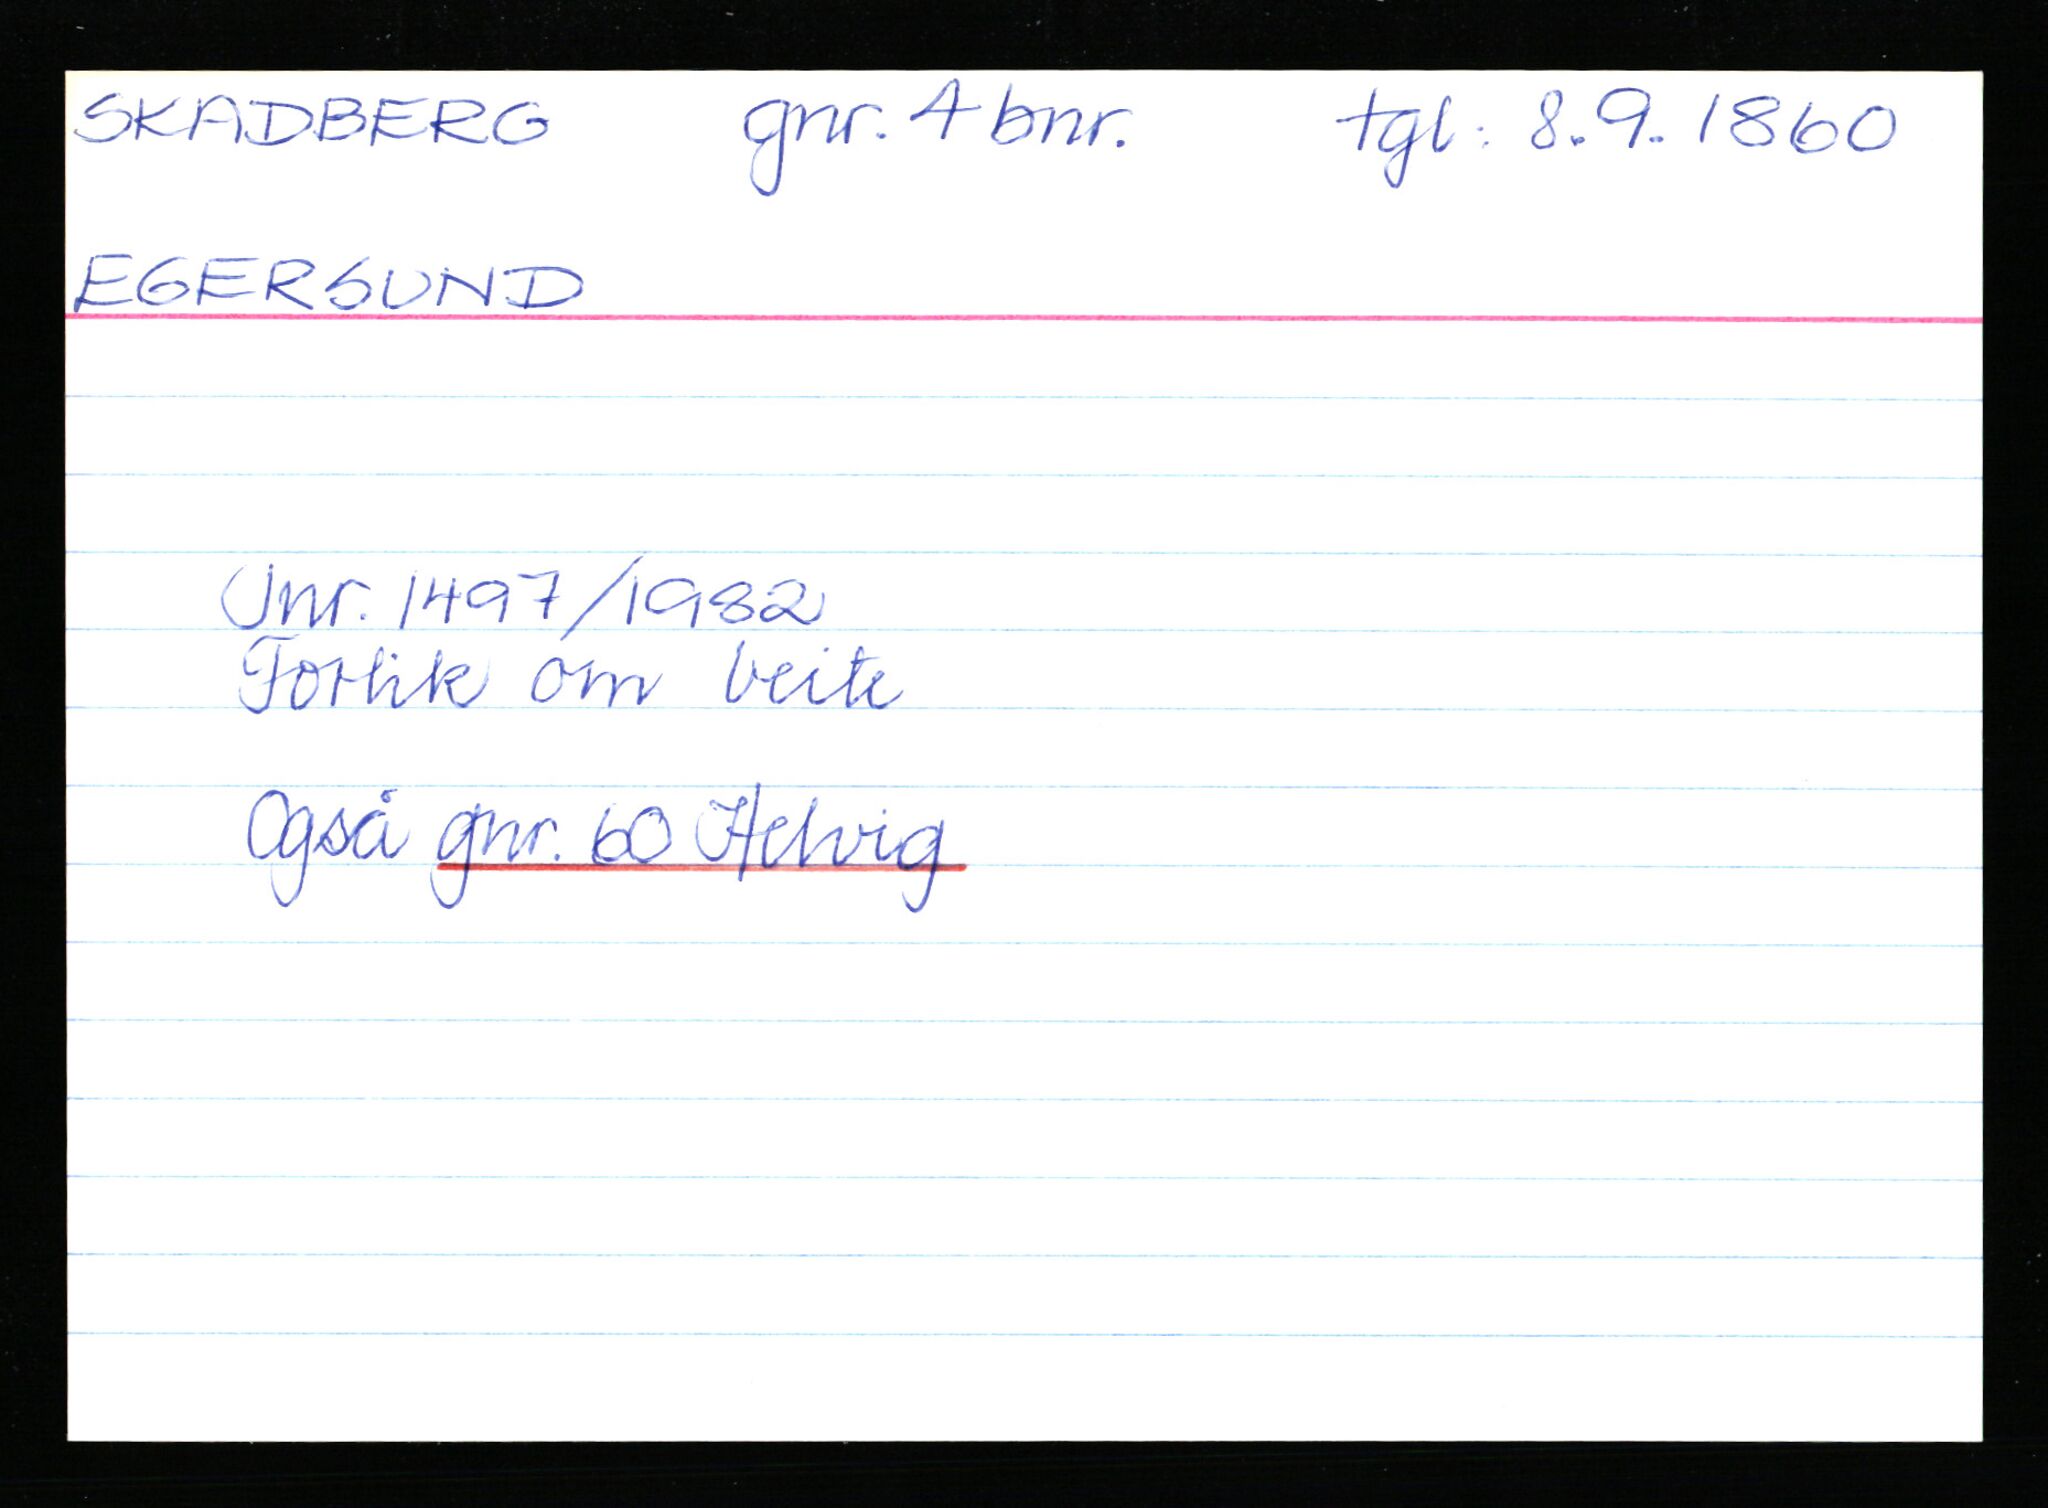 SKADBERG gnr. 4 bnr. tgl: 8.9.1860
EGERSUND
Jnr. 1497/1982
Forlik om beite
Også gnr. 60 Helvig